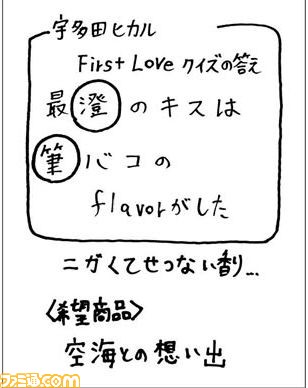 宇多田ヒカル
First Love クイズの答え
最澄のキスは
筆バコの
flavorがした
ニガくてせつない香り…
〈希望商品〉
空海との想い出
ファミ通.com